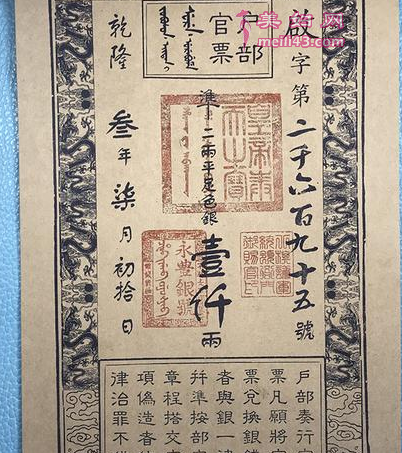 meili43.com
戶部
官票
啟字第二千六百九十五號
準二兩平足色銀壹仟兩
乾隆叁年柒月初拾日
皇帝奉天之寶
戶部奏行
票凡願將
票兌換銀
者與銀一
幷準按部
章程搭交
項偽造者
律治罪不